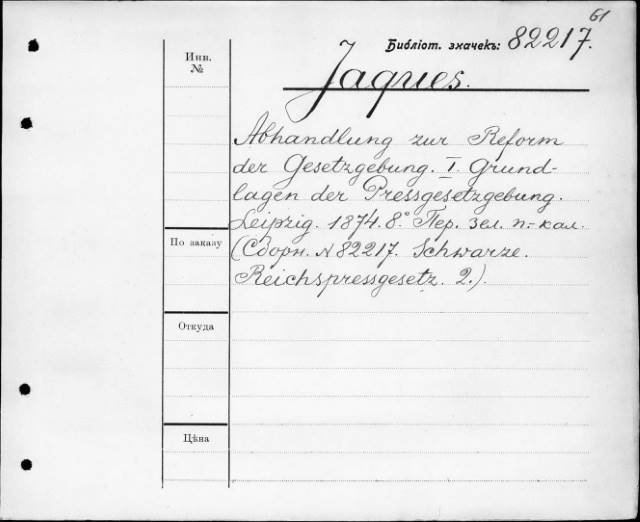 61
Библіот. значекъ: 82217.
Инв.
№
Jaques.
Abhandlung zur Reform
der Gesetzgebung. I. Grund-
lagen der Pressgesetzgebung.
Leipzig. 1874. 8°. Пер. зел. п.-кал.
По заказу
(Сборн. N 82217. Schwarze.
Reichspressgesetz. 2.).
Откуда
Цѣна